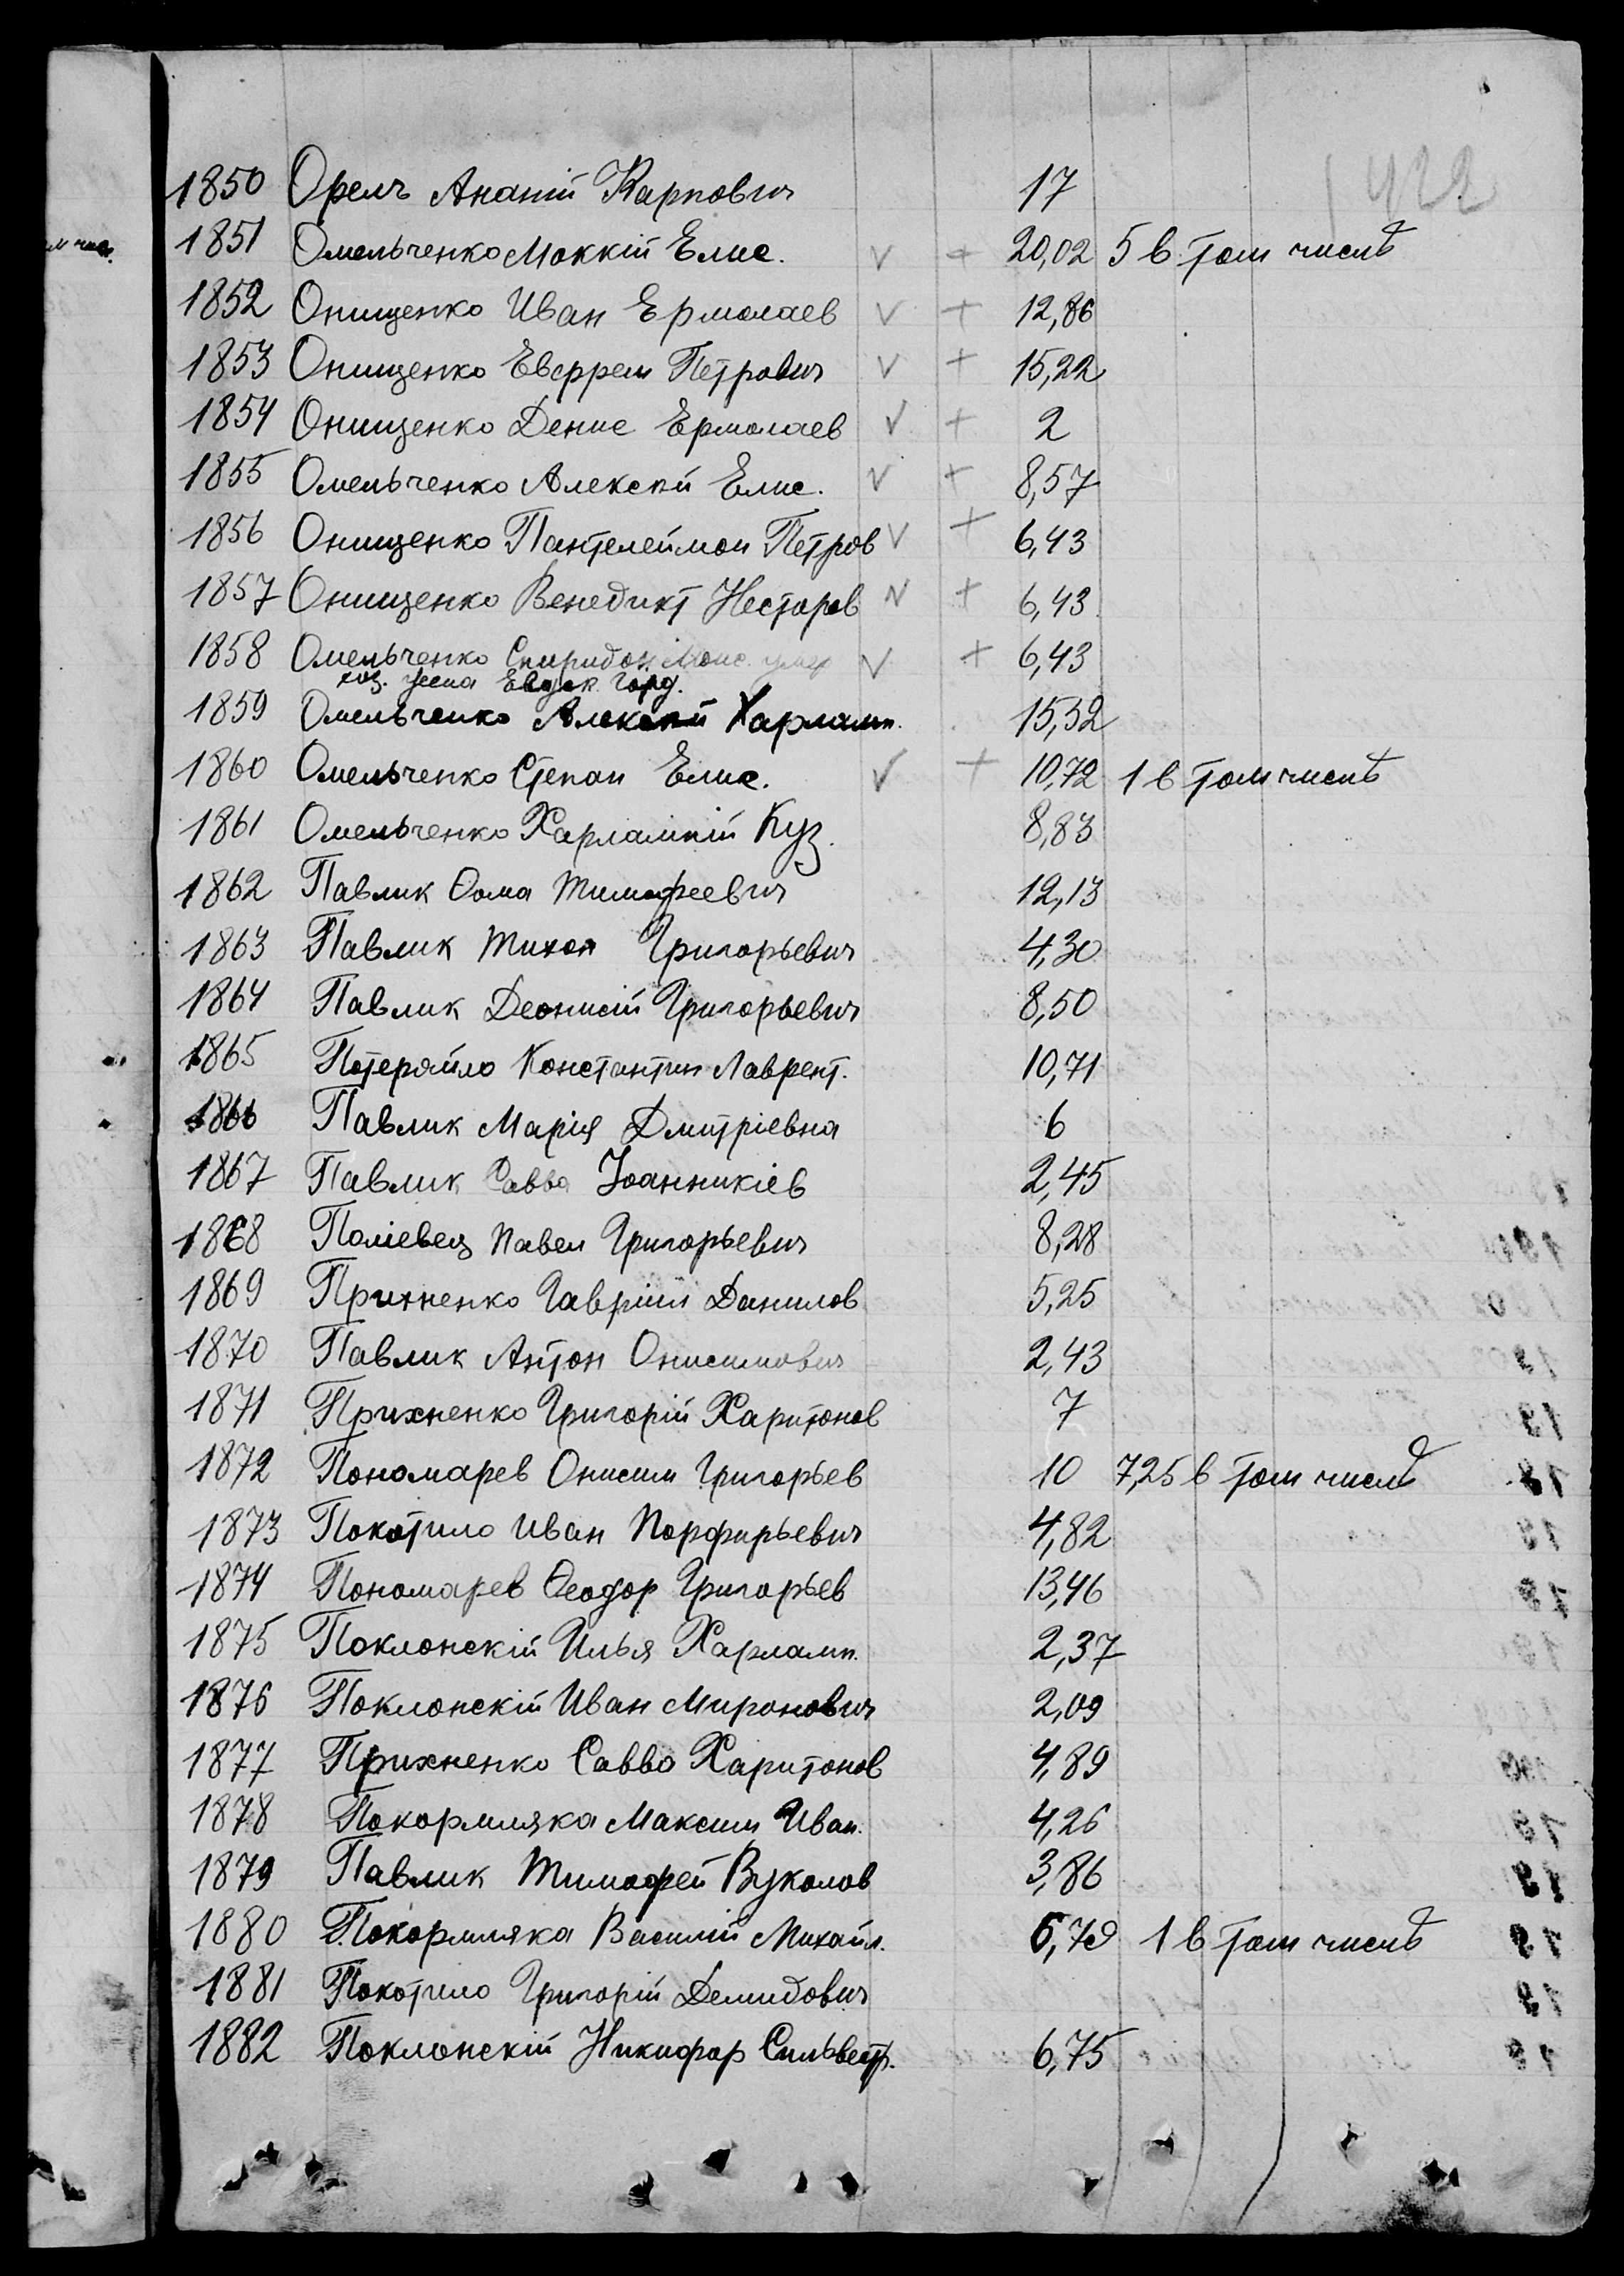 422
1850 Орелъ Ананій Карпович 17
1851 Омельченко Моккій Елис. V + 20,02 5 в том числѣ
1852 Онищенко Иван Ермолаев V + 12,86
1853 Онищенко Евсррем Петрович V + 15,22
1854 Онищенко Денис Ермолаев V + 2
1855 Омельченко Алексѣй Елис. V + 8,57
1856 Онищенко Пантелеймон Петров V + 6,43
1857 Онищенко Венедикт Несторов V + 6,43
1858 Омельченко Спиридон Моис. умер V + 6,43
хоз. жена Евдок. Горд.
1859 Омельченко Алексѣй Харламп. 15,32
1860 Омельченко Степан Елис. V + 10,72 1 в том числѣ
1861 Омельченко Харлампій Куз. 8,83
1862 Павлик Ѳома Тимофеевич 12,13
1863 Павлик Тихон Григорьевич 4,30
1864 Павлик Деонисій Григорьевич 8,50
1865 Потерайло Константин Лаврент. 10,71
1866 Павлик Марія Дмитріевна 6
1867 Павлик Савва Іоанникіев 2,45
1868 Поліевец Павел Григорьевич 8,28
1869 Прихненко Гавріил Данилов 5,25
1870 Павлик Антон Онисимович 2,43
1871 Прихненко Григорій Харитонов 7
1872 Пономарев Онисим Григорьев 10 7,25 в том числѣ
1873 Покотило Иван Порфирьевич 4,82
1874 Пономарев Ѳеодор Григорьев 13,46
1875 Поклонскій Илья Харламп. 2,37
1876 Поклонскій Иван Миронович 2,09
1877 Прихненко Савва Харитонов 4,89
1878 Покормляка Максим Иван. 4,26
1879 Павлик Тимофей Вуколов 3,86
1880 Покормляка Василій Михайл. 1 в том числѣ
1881 Покотило Григорій Демидович
1882 Поклонскій Никифор Сильвестр. 6,75